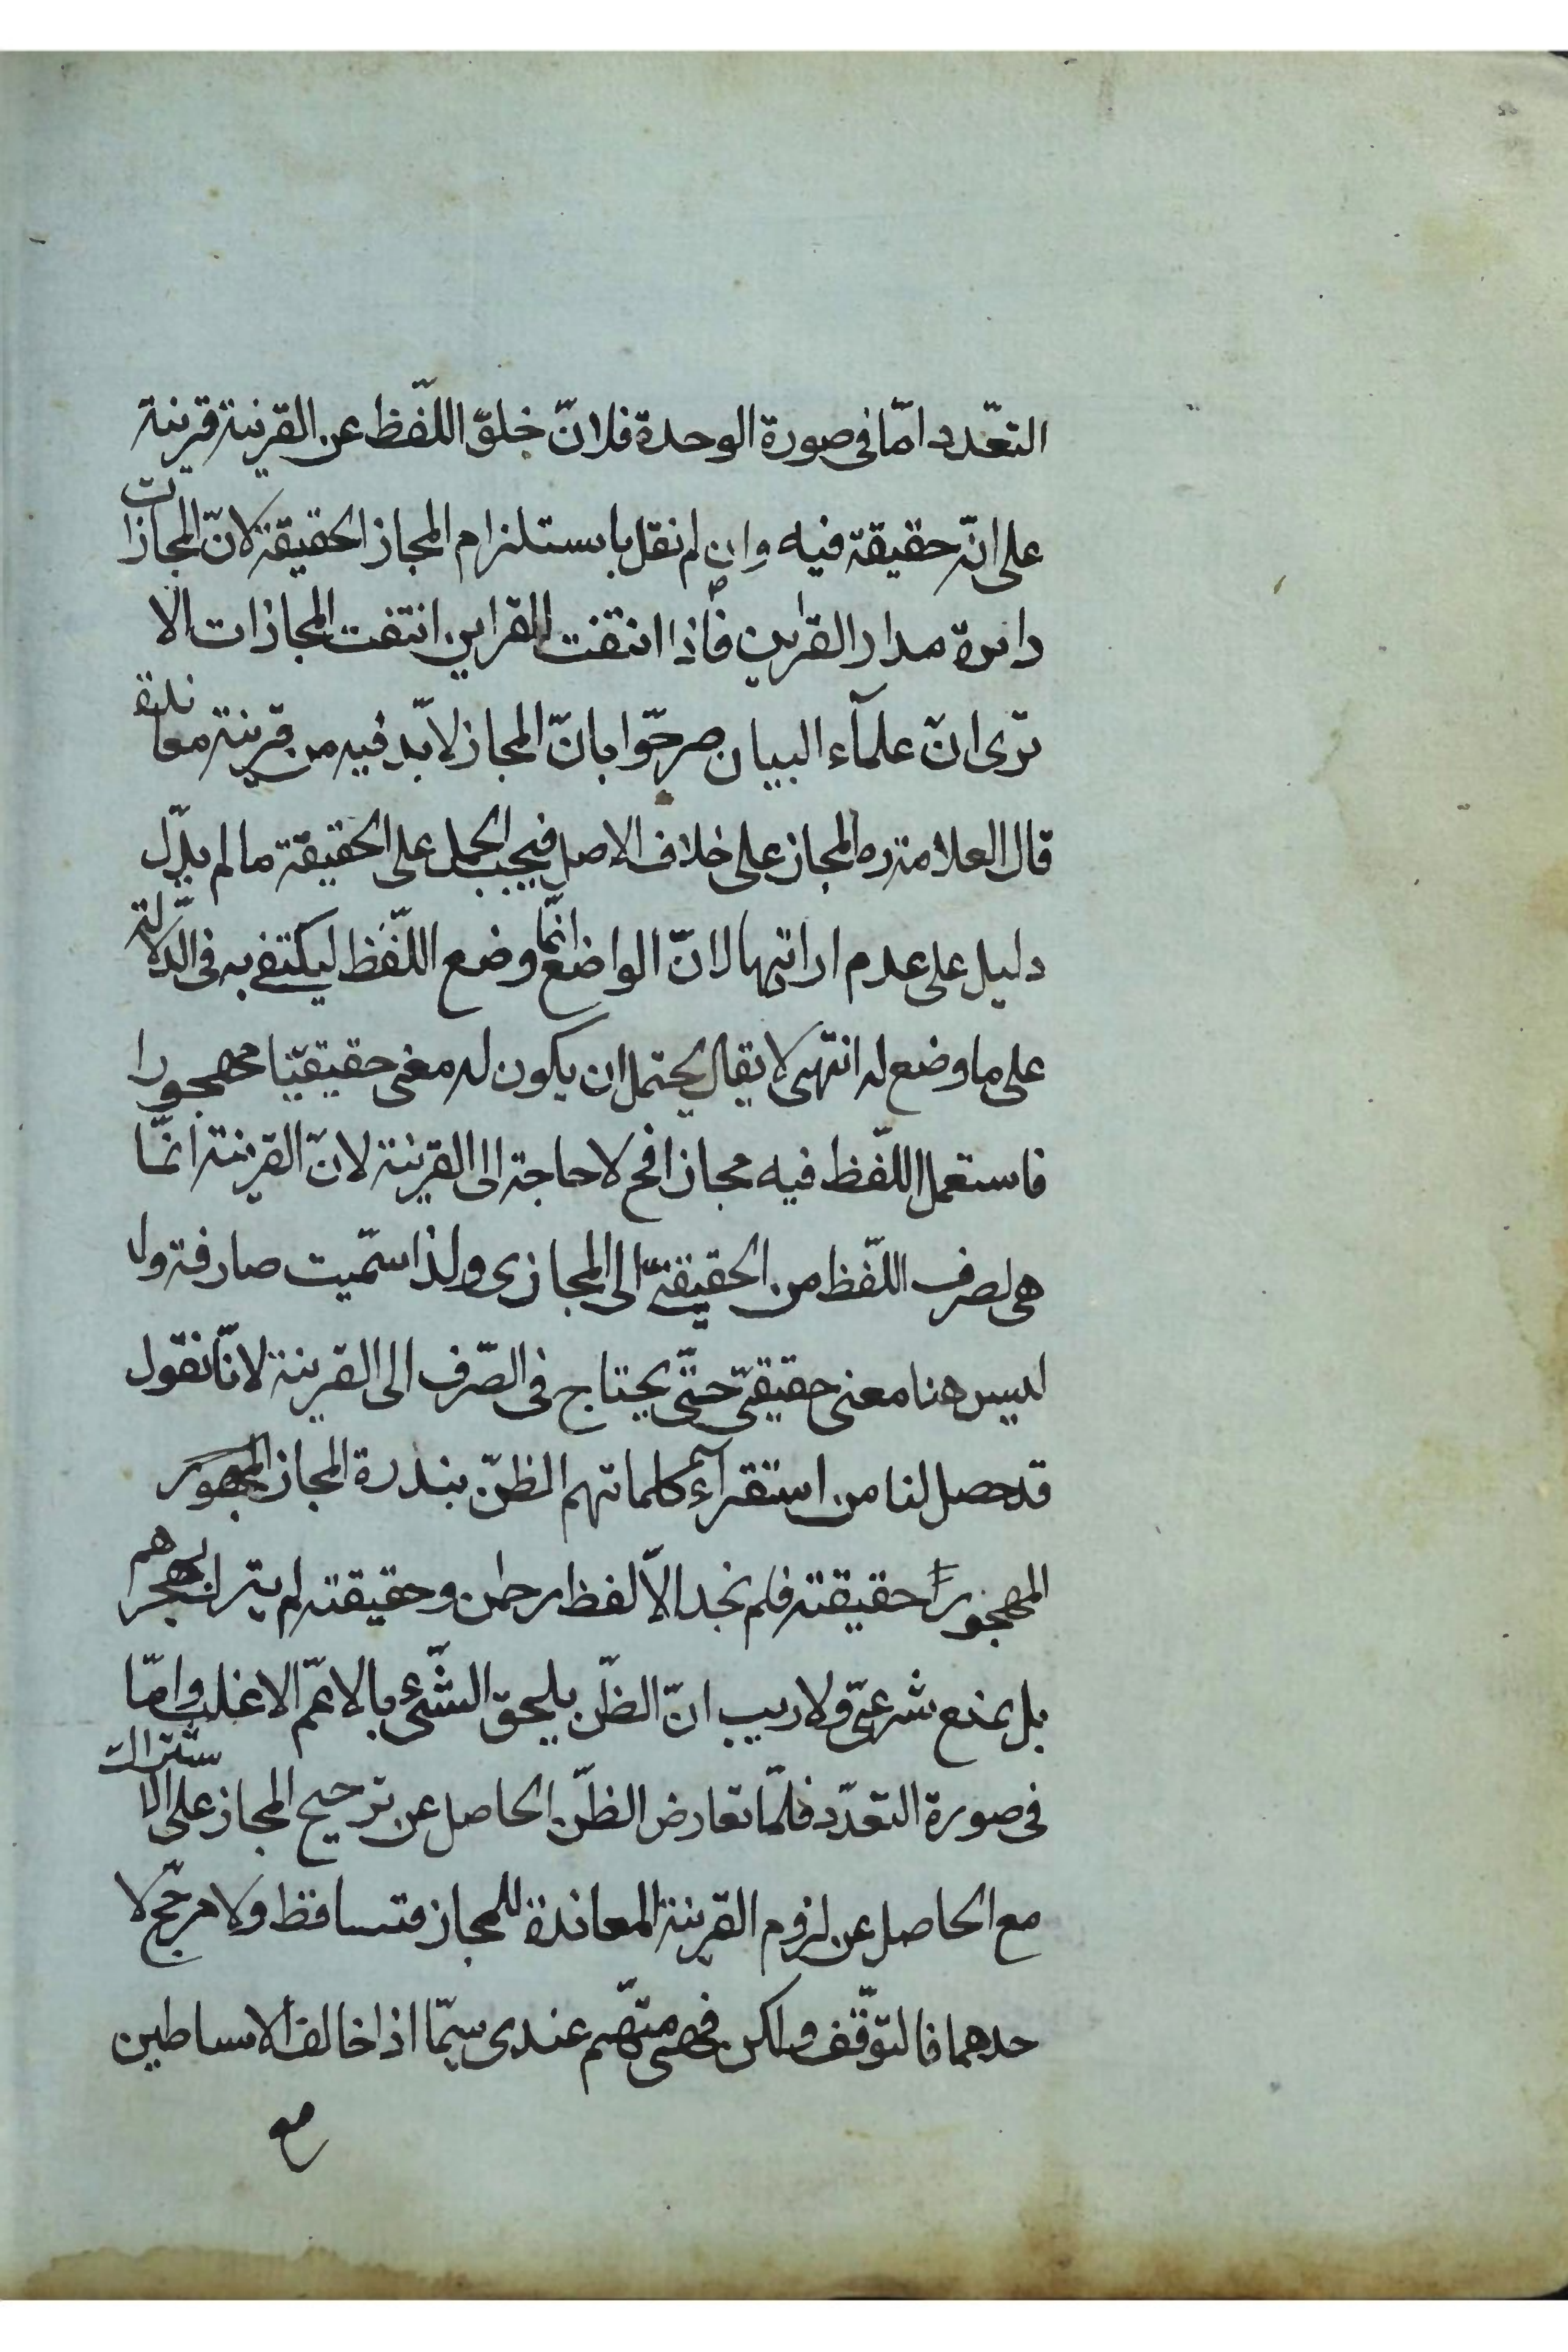 التعّدد امّا فى صورة الوحدة فلانّ خلوّ اللّفظ عن القرينة قرينة
على انّه حقيقة فيه وان لم نقل باستلزام المجاز الحقيقة لانّ المجازات
دايرة مدار القراين فاذا انتفت القراين انتفت المجازات الا
ترى انّ علمآء البيان صرحّوا بانّ المجاز لابّد فيه من قرينة معاندة
قال العلامة ره المجاز على خلاف الاصل فيجب الحمل على الحقيقة ما لم يدّل
دليل على عدم ارادتها لانّ الواضع انّما وضع اللّفظ ليكتفى به فى الدّلالة
على ما وضع له انتهى لا يقال يحتمل ان يكون له معنى حقيقيّا مهجورا
فاستعمل اللّفظ فيه مجازا فح لا حاجة الى القرينة لانّ القرينة انّما
هى لصرف اللّفظ من الحقيقىّ الى المجازى ولذا سمّيت صارفة ولا
ليس هنا معنى حقيقىّ حتّى يحتاج فى الصّرف الى القرينة لانّا نقول
قد حصل لنا من استقرآء كلماتهم الظنّ بندرة المجاز
المهجور حقيقته فلم نجد الاّ لفظ رحمن وحقيقته لم يترك بهجرهم
بل بمنع شرعىّ ولا ريب انّ الظنّ يلحق الشّىء بالاعمّ الاغلب وامّا
فى صورة التعدّد فلمّا تعارض الظنّ الحاصل عن ترجيح المجاز على الاشتراك
مع الحاصل عن لزوم القرينة المعاندة للمجاز فتساقط ولا مرجّح لا
حدهما فالتوّقف ولكن فهمى متهّم عندى سيّما اذا خالف الاساطين
مع